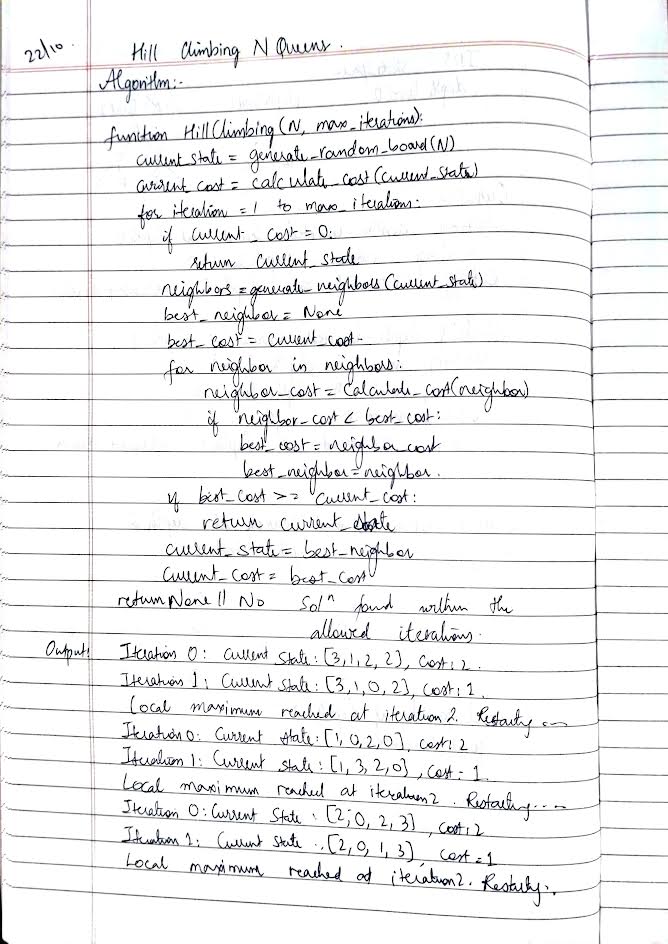 22/10.
Hill Climbing N Queens.
Algorithm:-
function HillClimbing(N, max_iterations):
current_state = generate_random_board(N)
current_cost = calculate_cost(current_state)
for iteration = 1 to max_iterations:
if current_cost = 0:
return current_state
neighbors = generate_neighbors(current_state)
best_neighbor = None
best_cost = current_cost.
for neighbor in neighbors:
neighbor_cost = calculate_cost(neighbor)
if neighbor_cost < best_cost:
best_cost = neighbor_cost
best_neighbor = neighbor.
if best_cost >= current_cost:
return current_state
current_state = best_neighbor
current_cost = best_cost
return None || No Solⁿ found within the
allowed iterations.
Output:
Iteration 0: Current State: [3,1,2,2], cost: 2.
Iteration 1: Current State: [3,1,0,2], cost: 1.
Local maximum reached at iteration 2. Restarting ...
Iteration 0: Current State: [1,0,2,0], cost: 2
Iteration 1: Current State: [1,3,2,0], cost = 1.
Local maximum reached at iteration 2. Restarting ....
Iteration 0: Current State: [2,0,2,3], cost: 2
Iteration 1: Current State: [2,0,1,3], cost = 1
Local maximum reached at iteration 2. Restarting..